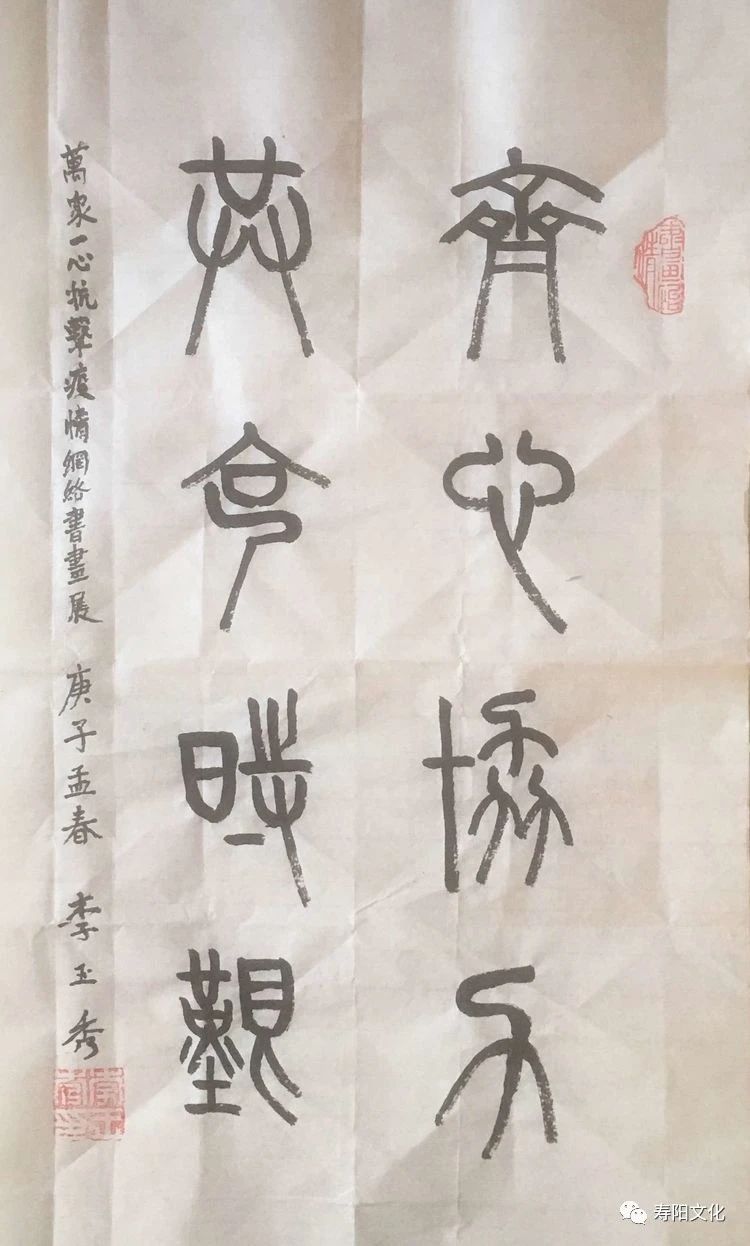 齊心協力
共克時艱
萬衆一心抗擊疫情網絡書畫展 庚子孟春 李玉秀
寿阳文化